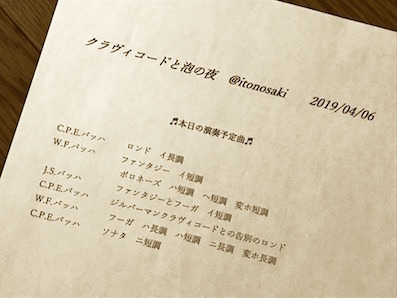 クラヴィコードと泡の夜 @itonosaki 2019/04/06
♬本日の演奏予定曲♬
C.P.E.バッハ ロンド イ長調
W.F.バッハ ファンタジー イ短調
ポロネーズ ハ短調 ヘ短調 変ホ短調
J.S.バッハ ファンタジーとフーガ イ短調
C.P.E.バッハ ジルバーマンクラヴィコードとの告別のロンド
W.F.バッハ フーガ ハ長調 ハ短調 ニ長調 変ホ長調
C.P.E.バッハ ソナタ ニ短調